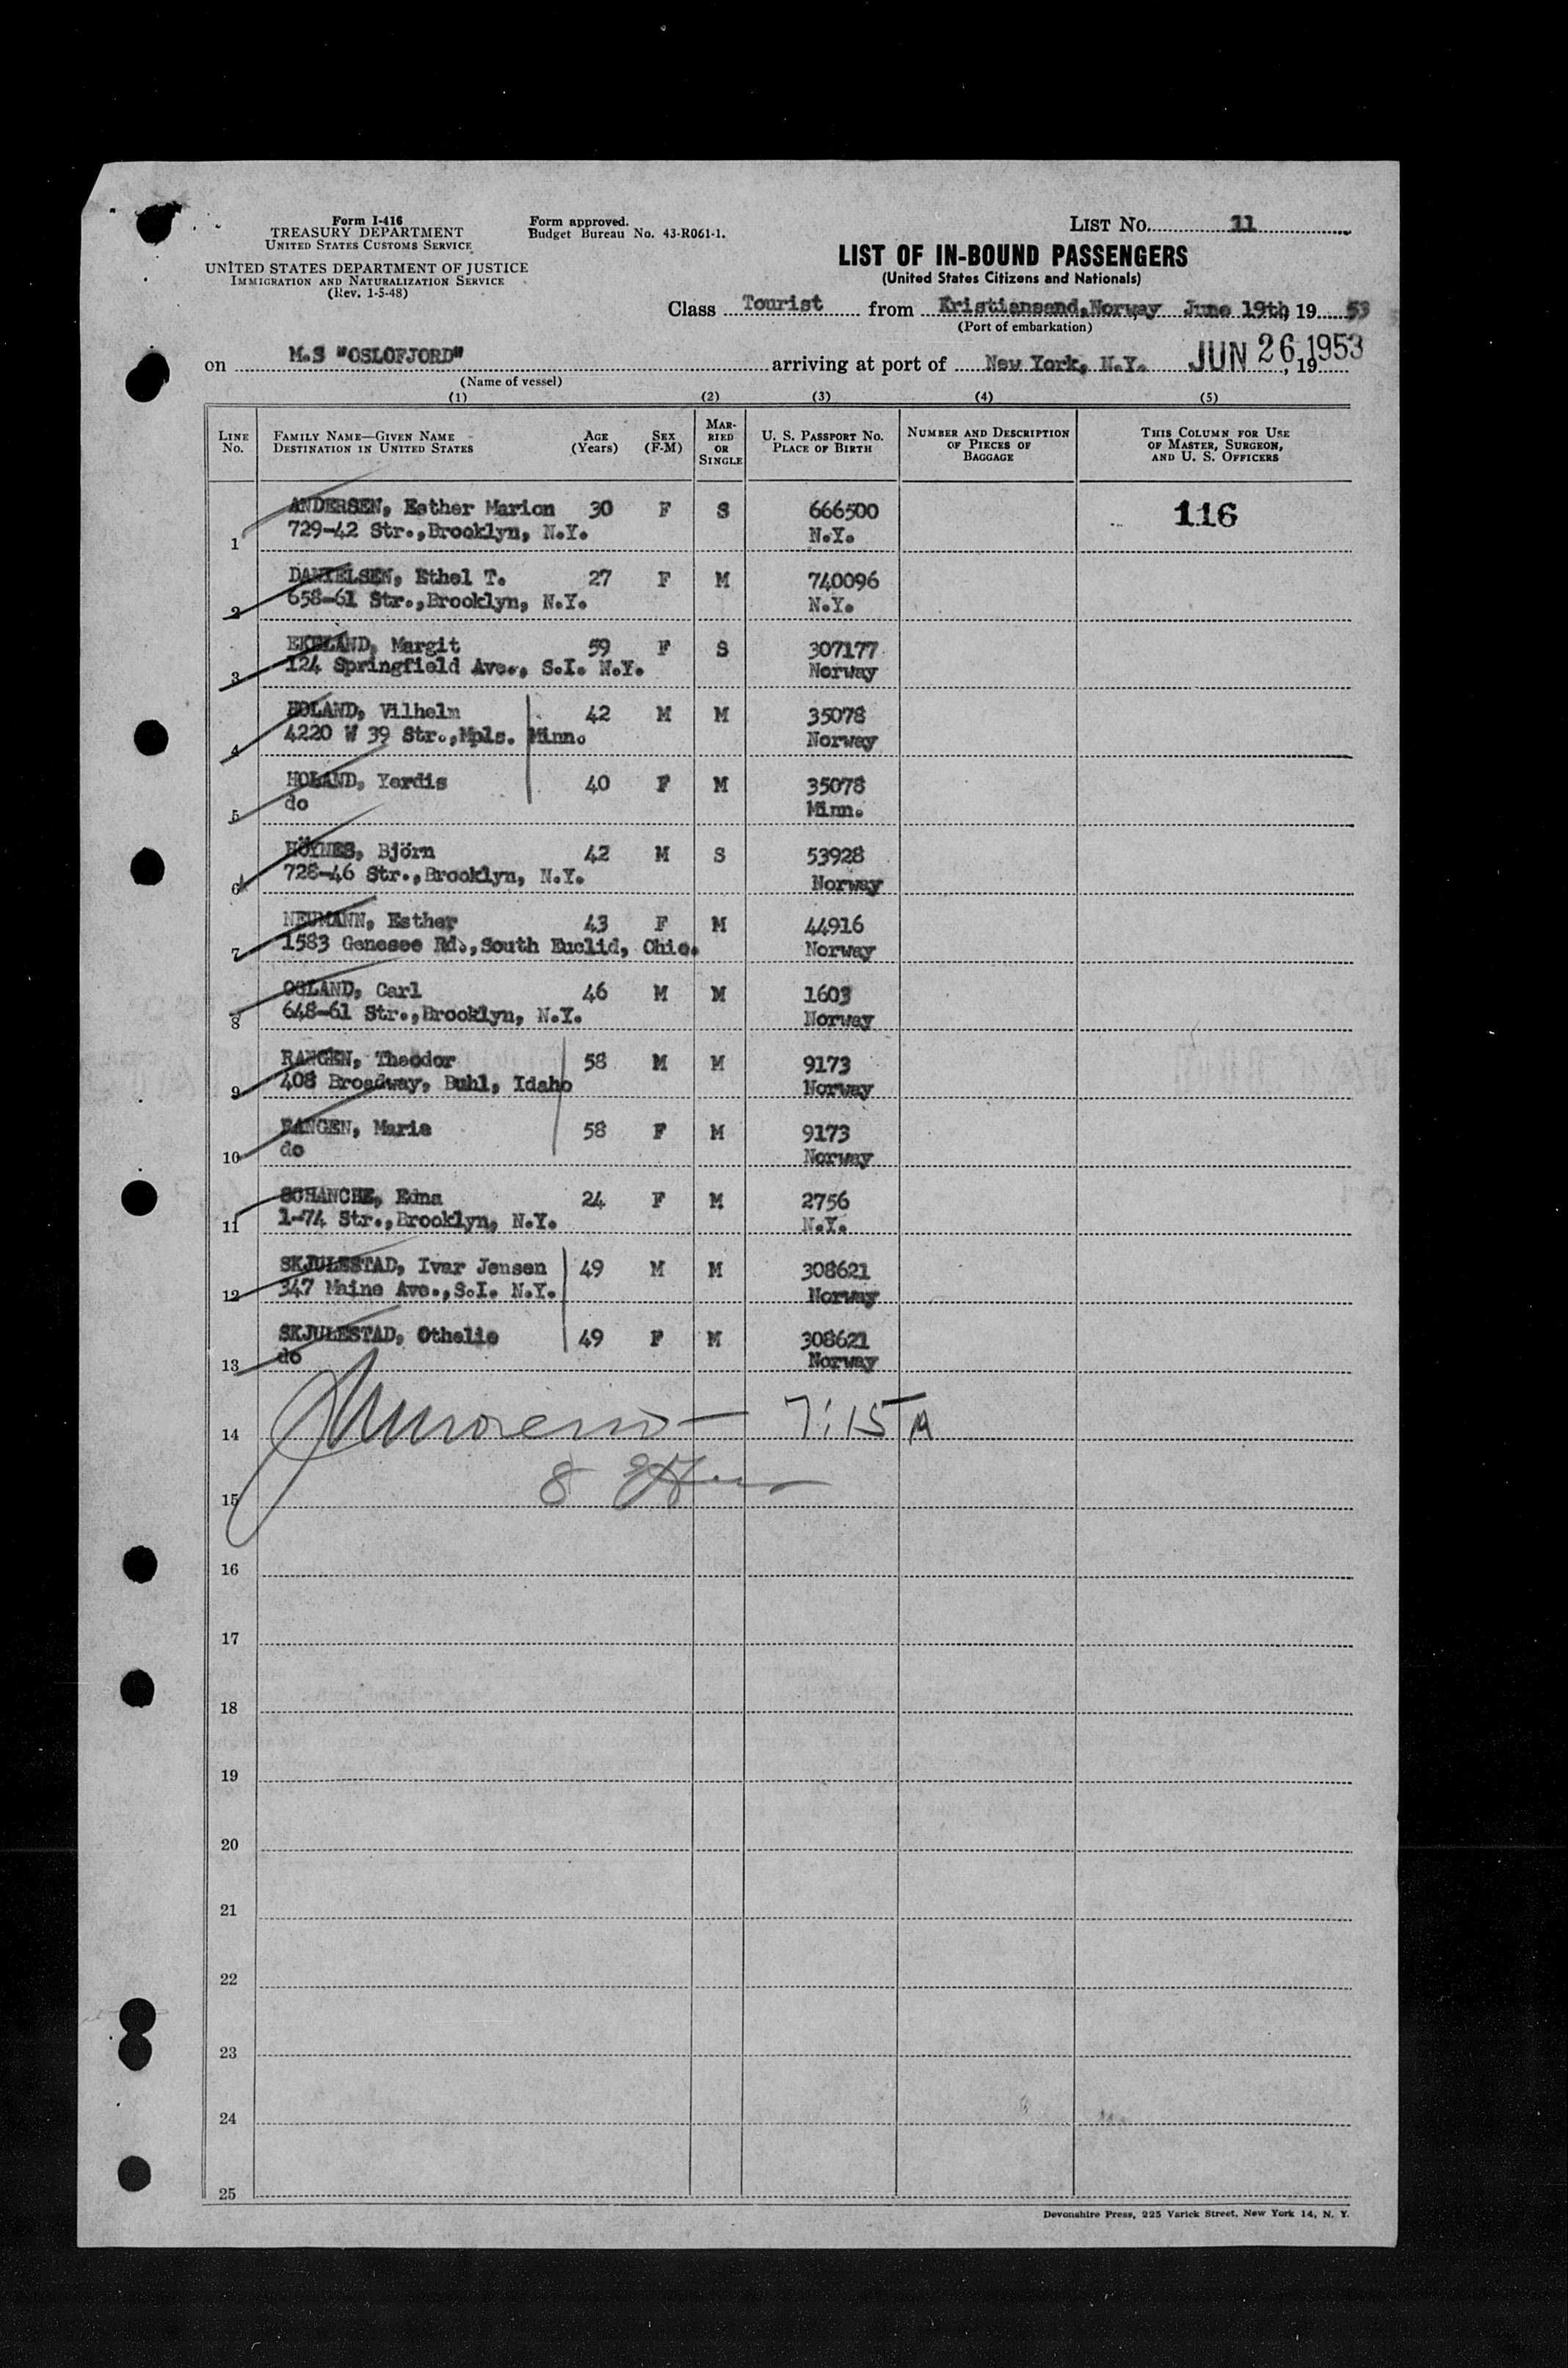 Form I-416
TREASURY DEPARTMENT
UNITED STATES CUSTOMS SERVICE
UNITED STATES DEPARTMENT OF JUSTICE
IMMIGRATION AND NATURALIZATION SERVICE
(Rev. 1-5-48)
Form approved.
Budget Bureau No. 43-R061-1.
LIST No. 11
LIST OF IN-BOUND PASSENGERS
(United States Citizens and Nationals)
Class Tourist from Kristiansand, Norway June 19th, 19 53
(Port of embarkation)
on M.S "OSLOFJORD" arriving at port of New York, N.Y. JUN 26, 1953, 19
(Name of vessel)
(1) (2) (3) (4) (5)
LINE No. FAMILY NAME—GIVEN NAME DESTINATION IN UNITED STATES AGE (Years) SEX (F-M) MARRIED OR SINGLE U. S. PASSPORT No. PLACE OF BIRTH NUMBER AND DESCRIPTION OF PIECES OF BAGGAGE THIS COLUMN FOR USE OF MASTER, SURGEON, AND U. S. OFFICERS
ANDERSEN, Esther Marion 30 F S 666500 116
1 729-42 Str., Brooklyn, N.Y. N.Y.
DANIELSEN, Ethel T. 27 F M 740096
2 658-61 Str., Brooklyn, N.Y. N.Y.
EKELAND, Margit 59 F S 307177
3 124 Springfield Ave., S.I. N.Y. Norway
HOLAND, Vilhelm 42 M M 35078
4 4220 W 39 Str., Mpls. Minn. Norway
HOLAND, Yerdis 40 F M 35078
5 do Minn.
HÖYNES, Björn 42 M S 53928
6 728-46 Str., Brooklyn, N.Y. Norway
NEUMANN, Esther 43 F M 44916
7 1583 Genesee Rd., South Euclid, Ohio. Norway
OSLAND, Carl 46 M M 1603
8 648-61 Str., Brooklyn, N.Y. Norway
RANGEN, Theodor 58 M M 9173
9 408 Broadway, Buhl, Idaho Norway
RANGEN, Marie 58 F M 9173
10 do Norway
SCHANCHE, Edna 24 F M 2756
11 1-74 Str., Brooklyn, N.Y. N.Y.
SKJULESTAD, Ivar Jensen 49 M M 308621
12 347 Maine Ave., S.I. N.Y. Norway
SKJULESTAD, Othelie 49 F M 308621
13 do Norway
14 7:15 A
15 8
16
17
18
19
20
21
22
23
24
25
Devonshire Press, 225 Varick Street, New York 14, N. Y.